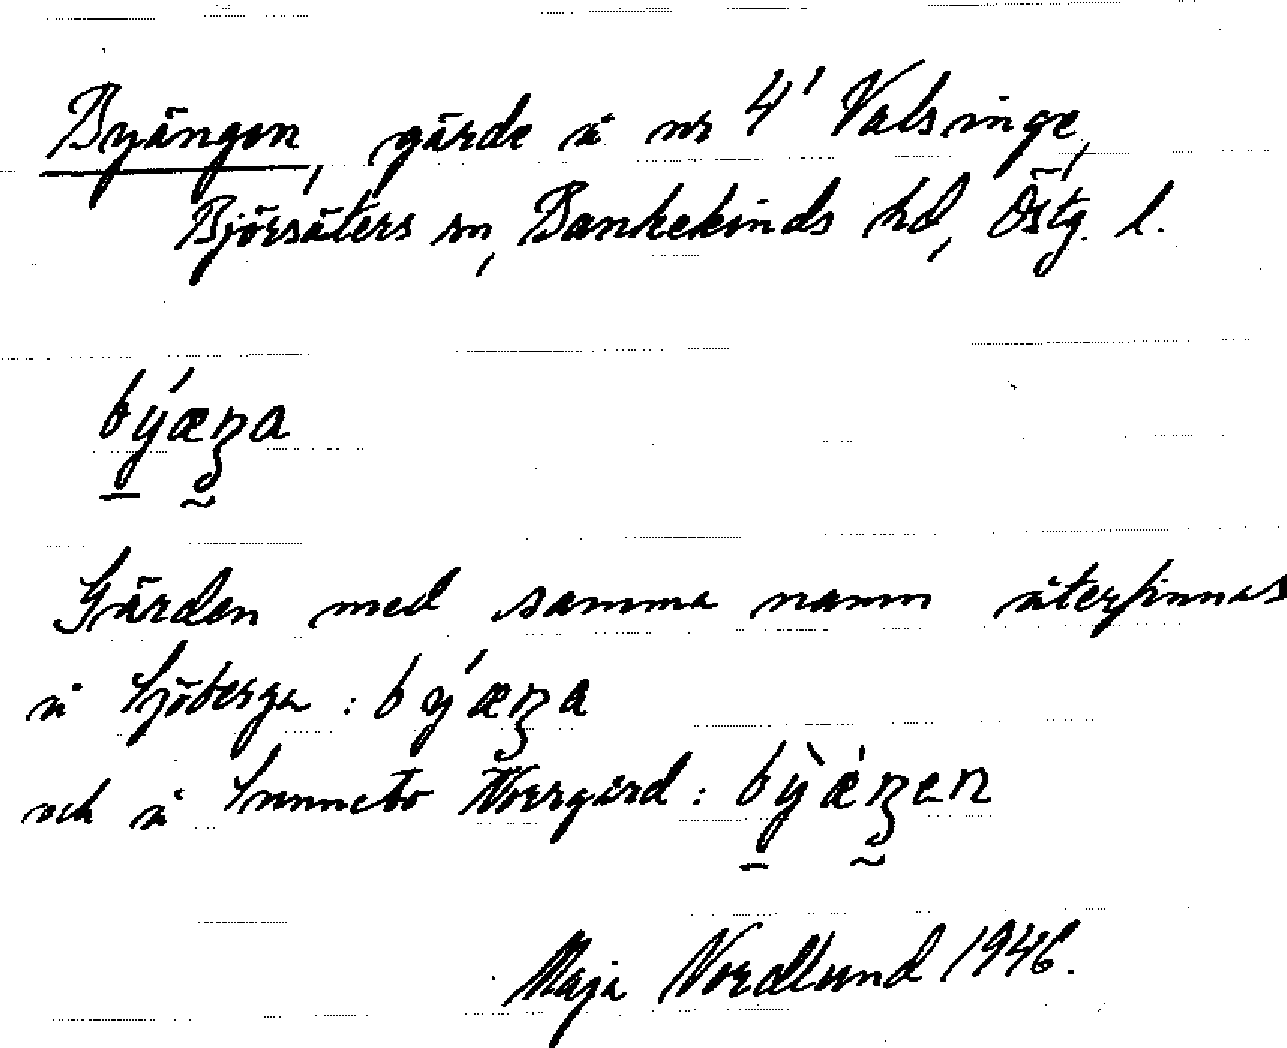 Byängen, gärde å nr 4¹ Valsinge,
Björsäters sn, Bankekinds hd, Östg. l.
by´æŋa
Gärden med samma namn återfinnas
å Sjöberga: by´æŋa
och å Sunneto Norrgård: bỳǽŋen
Maja Nordlund 1946.